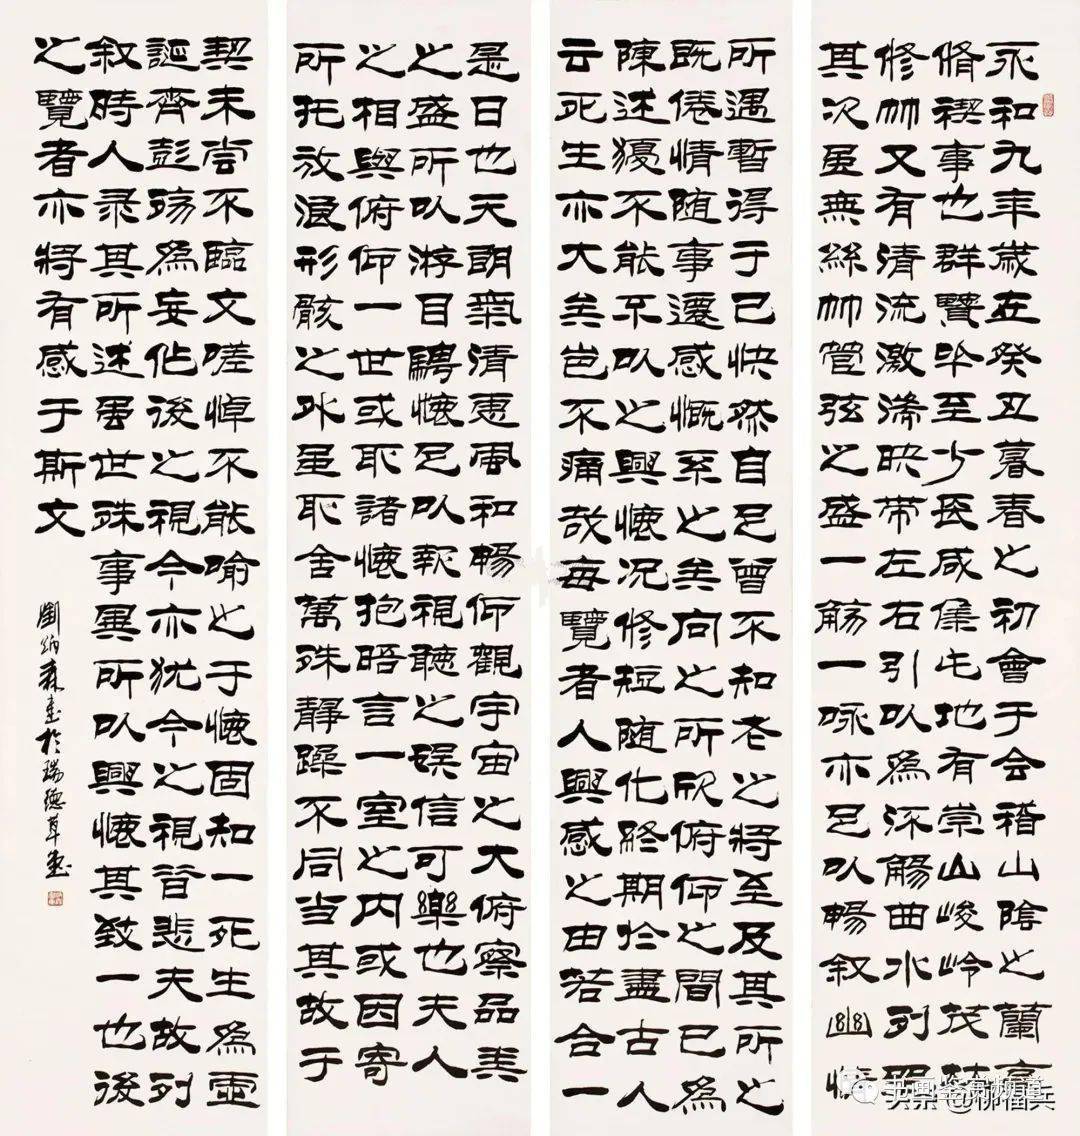 永和九年歲在癸丑暮春之初會于会稽山陰之蘭亭
脩禊事也群賢畢至少長咸集此地有崇山峻岭茂林
修竹又有清流激湍映带左右引以為流觴曲水列坐
其次虽無絲竹管弦之盛一觞一咏亦足以暢叙幽情
所遇暫得于己快然自足曾不知老之將至及其所之
既倦情随事遷感慨系之矣向之所欣俯仰之間已為
陳迹猶不能不以之興懷况修短随化終期於盡古人
云死生亦大矣岂不痛哉每覽昔人興感之由若合一
是日也天朗氣清惠風和暢仰觀宇宙之大俯察品类
之盛所以游目騁懷足以极視聽之娱信可樂也夫人
之相與俯仰一世或取諸懷抱晤言一室之内或因寄
所托放浪形骸之外虽取舍萬殊静躁不同当其欣于
契未尝不臨文嗟悼不能喻之于懷固知一死生為虚
誕齊彭殤為妄作後之視今亦犹今之視昔悲夫故列
叙時人录其所述虽世殊事異所以興懷其致一也後
之覽者亦將有感于斯文
劉炳森書於瑞德草堂
书画鉴赏频道
头条@柳福兵